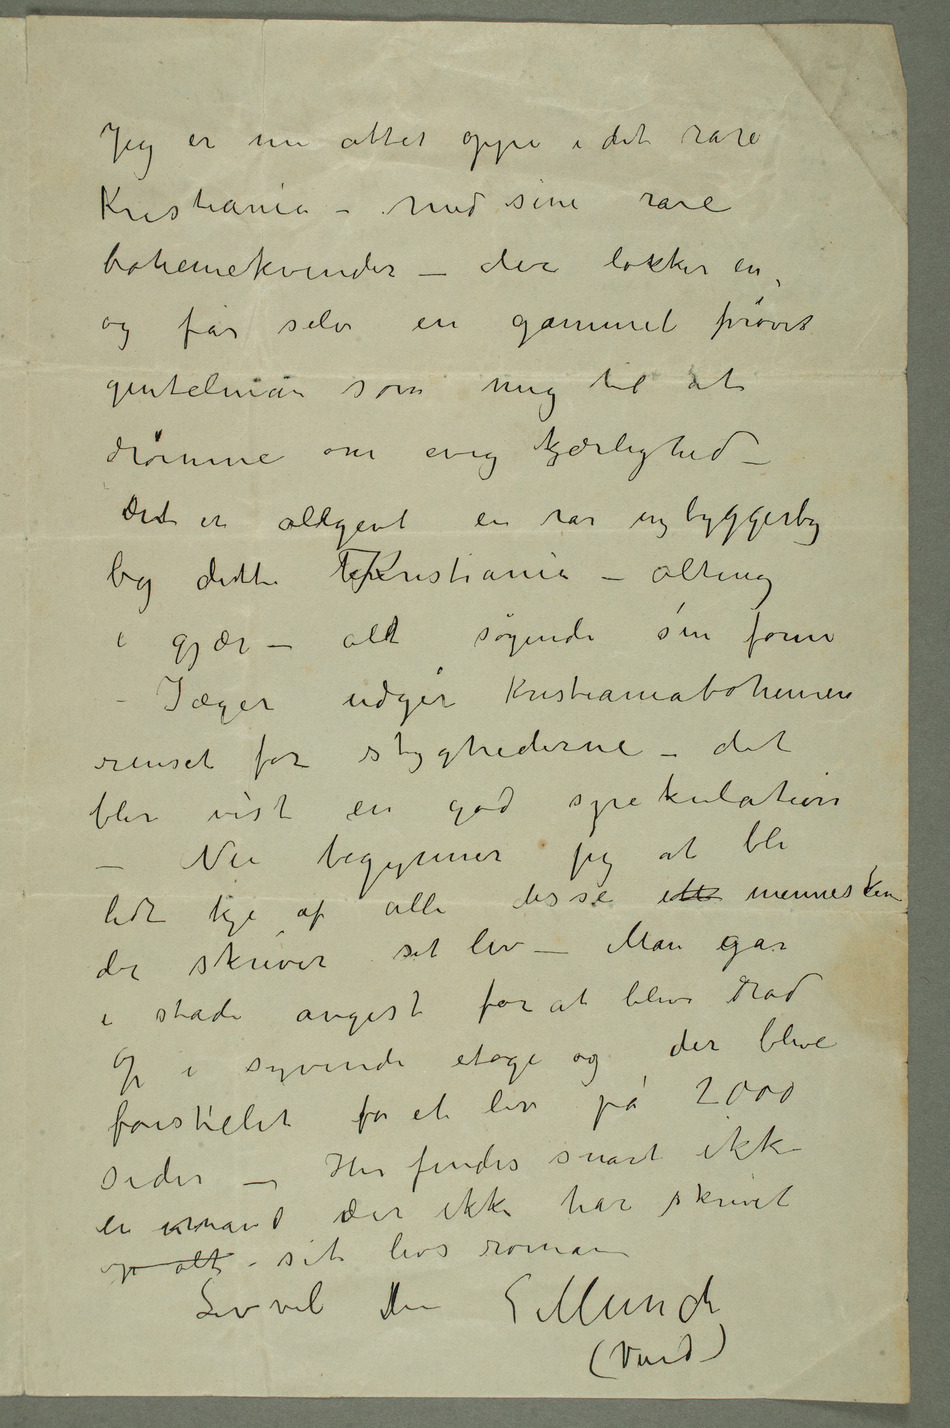 Jeg er nu atter oppe i det rare
Kristiania – med sine rare
bohemekvinder – der lokker en,
og får selv en gammel prøvet
gentelman som mig til at
drømme om evig kjærlighed –
Det er aldgevl en rar nybyggerby
by dette Kristiania – alting
i gjær – alt søgende sin form
– Jæger udgir Kristianiabohemen
renset for styghederne – det
blir vist en god spekulation
– Nu begynner jeg at bli
lidt kje af alle disse mennesker
der skriver sit liv – Man går
i stadi angest for at blive drad
op i syvende etage og der blive
forstilet for et liv på 2000
sider – Her findes snart ikke
en mand der ikke har skrivet
op alt sit livs roman
Lev vel Din E Munch
(Vend)